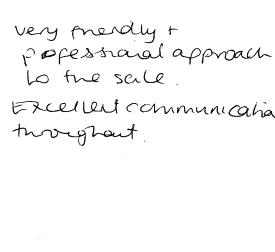 very friendly +
professional approach
to the sale.
Excellent communication
throughout.